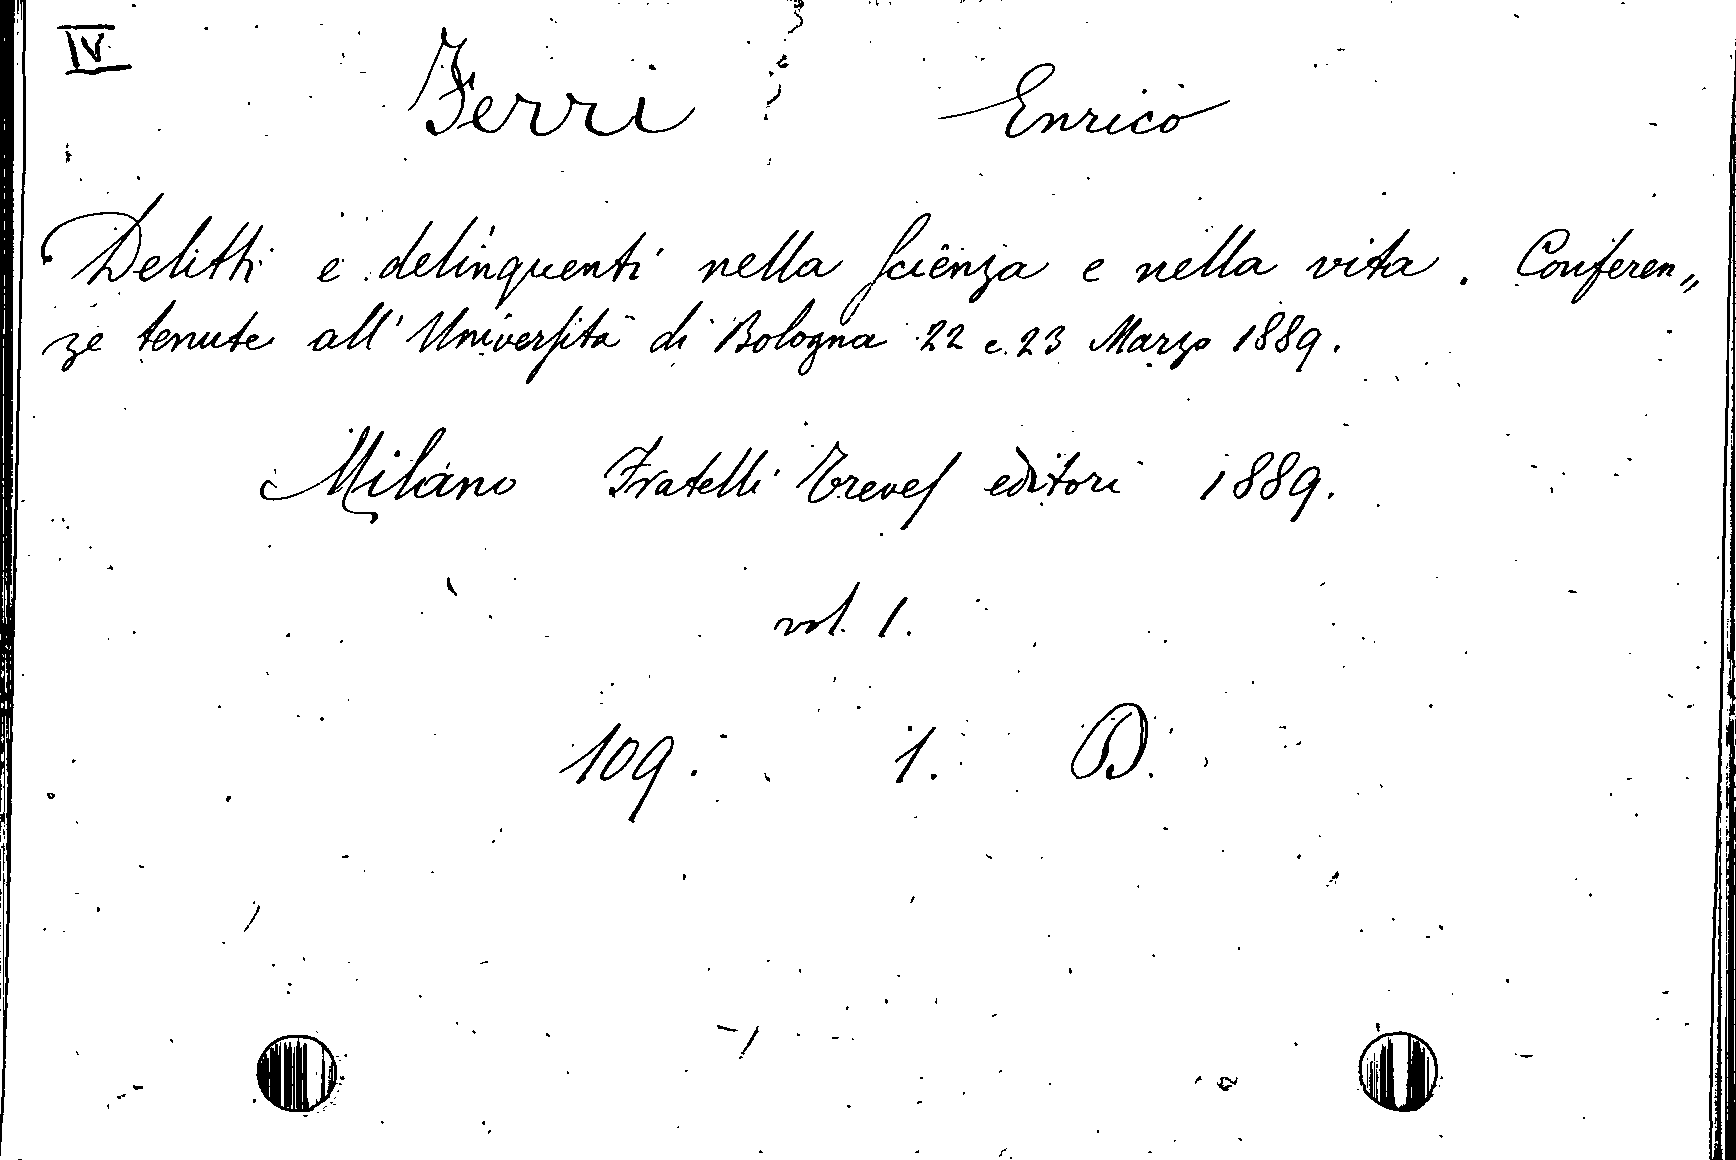 IV
Ferri Enrico
Delitti e delinquenti nella scienza e nella vita. Conferen„
ze tenute all' Università di Bologna 22 e 23 Marzo 1889.
Milano Fratelli Treves editori 1889.
vol. 1.
109. 1. D.